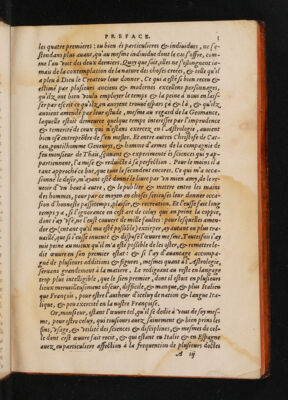 PREFACE. 3
les quatre premieres: ou bien és particulieres & indiuidus, ne s'e-
stendans plus auant, qu'au mesme indiuidu dont le cas s'offre, com-
me l'au voit des deux derniers. Quoy que soit, elles ne s'eslongnent ia-
mais de la contemplation de la nature des choses creées, & telle qu'il
a pleu à Dieu le Createur leur donner. Ce qui a esté si bien receu &
estimé par plusieurs anciens & modernes excellens personnages,
qu'ilz ont bien voulu employer le temps & la peine à nous en lais-
ser par escrit ce qu'ilz en auoyent trouué espars pà & là, & qu'ilz
auoient amendé par leur estude, mesme au regard de la Geomance,
laquelle estoit demeurée quelque temps interessée par l'imprudence
& temerité de ceux qui n'estans exercez en l'Astrologie, auoient
bien osé entreprendre de s'en mesler. Et entre autres Christofe de Cat-
tan, gentilhomme Geneuoys, & homme d'armes de la compagnie de
feu monsieur de Thais, sçauant & experimenté és sciences qui y ap-
partiennent, l'a mise & reduicte à sa perfection. Pour le moins il a
tant approché ce but, que tous le secondent encores. Ce qui m'a occa-
sionné le disir, m'ayant esté donné le liure par vn mien amy, de le re-
uenir d'vn bout à autre, & le publier & mettre entre les mains
des hommes, pour par ce moyen en choses serieuses leur donner occa-
sion d'honneste passetemps, plaisir, & recreation. Et l'eusse fait long
temps y a, si l'ignorance en cest art de celuy qui en print la coppie,
dont i'ay vsé, ne l'eust couuert de mille fautes: pour lesquelles amen-
der (entant qu'il m'a esté possible) extirper, ay autant ou plus tra-
uaillé, que si i'eusse inuenté & disposé l'œuure moymesme. Toutesfois i'ay
mis peine au mieux qu'il m'a esté possible de les oster, & remettre le-
dit œuure en son premier estat: & si l'ay d'auantage accompa-
gné de plusieurs additions & figures, mesmes quant à l'Astrologie,
seruans grandement à la matiere. Le redigeant au reste en langage
trop plus intelligible, que le sien premier, dont il estoit en plusieurs
lieux merueilleusement obscur, difficile, & manque, & plus Italien
que François, pour estre l'autheur d'iceluy de nation & langue Ita-
lique, & peu exercité en la nostre Françoise.
Or, monsieur, estant l'œuure tel, qu'il se dedie à vous de soy mes-
me, pour estre celuy, qui tousiours auez sainement & bien prins les
fins, vsage, & vtilité des sciences & disciplines, & mesmes de cel-
le dont cest œuure fait recit, & qui estant en Italie & en Espagne
auez eu particuliere affection à la frequentation de plusieurs doctes
A iij